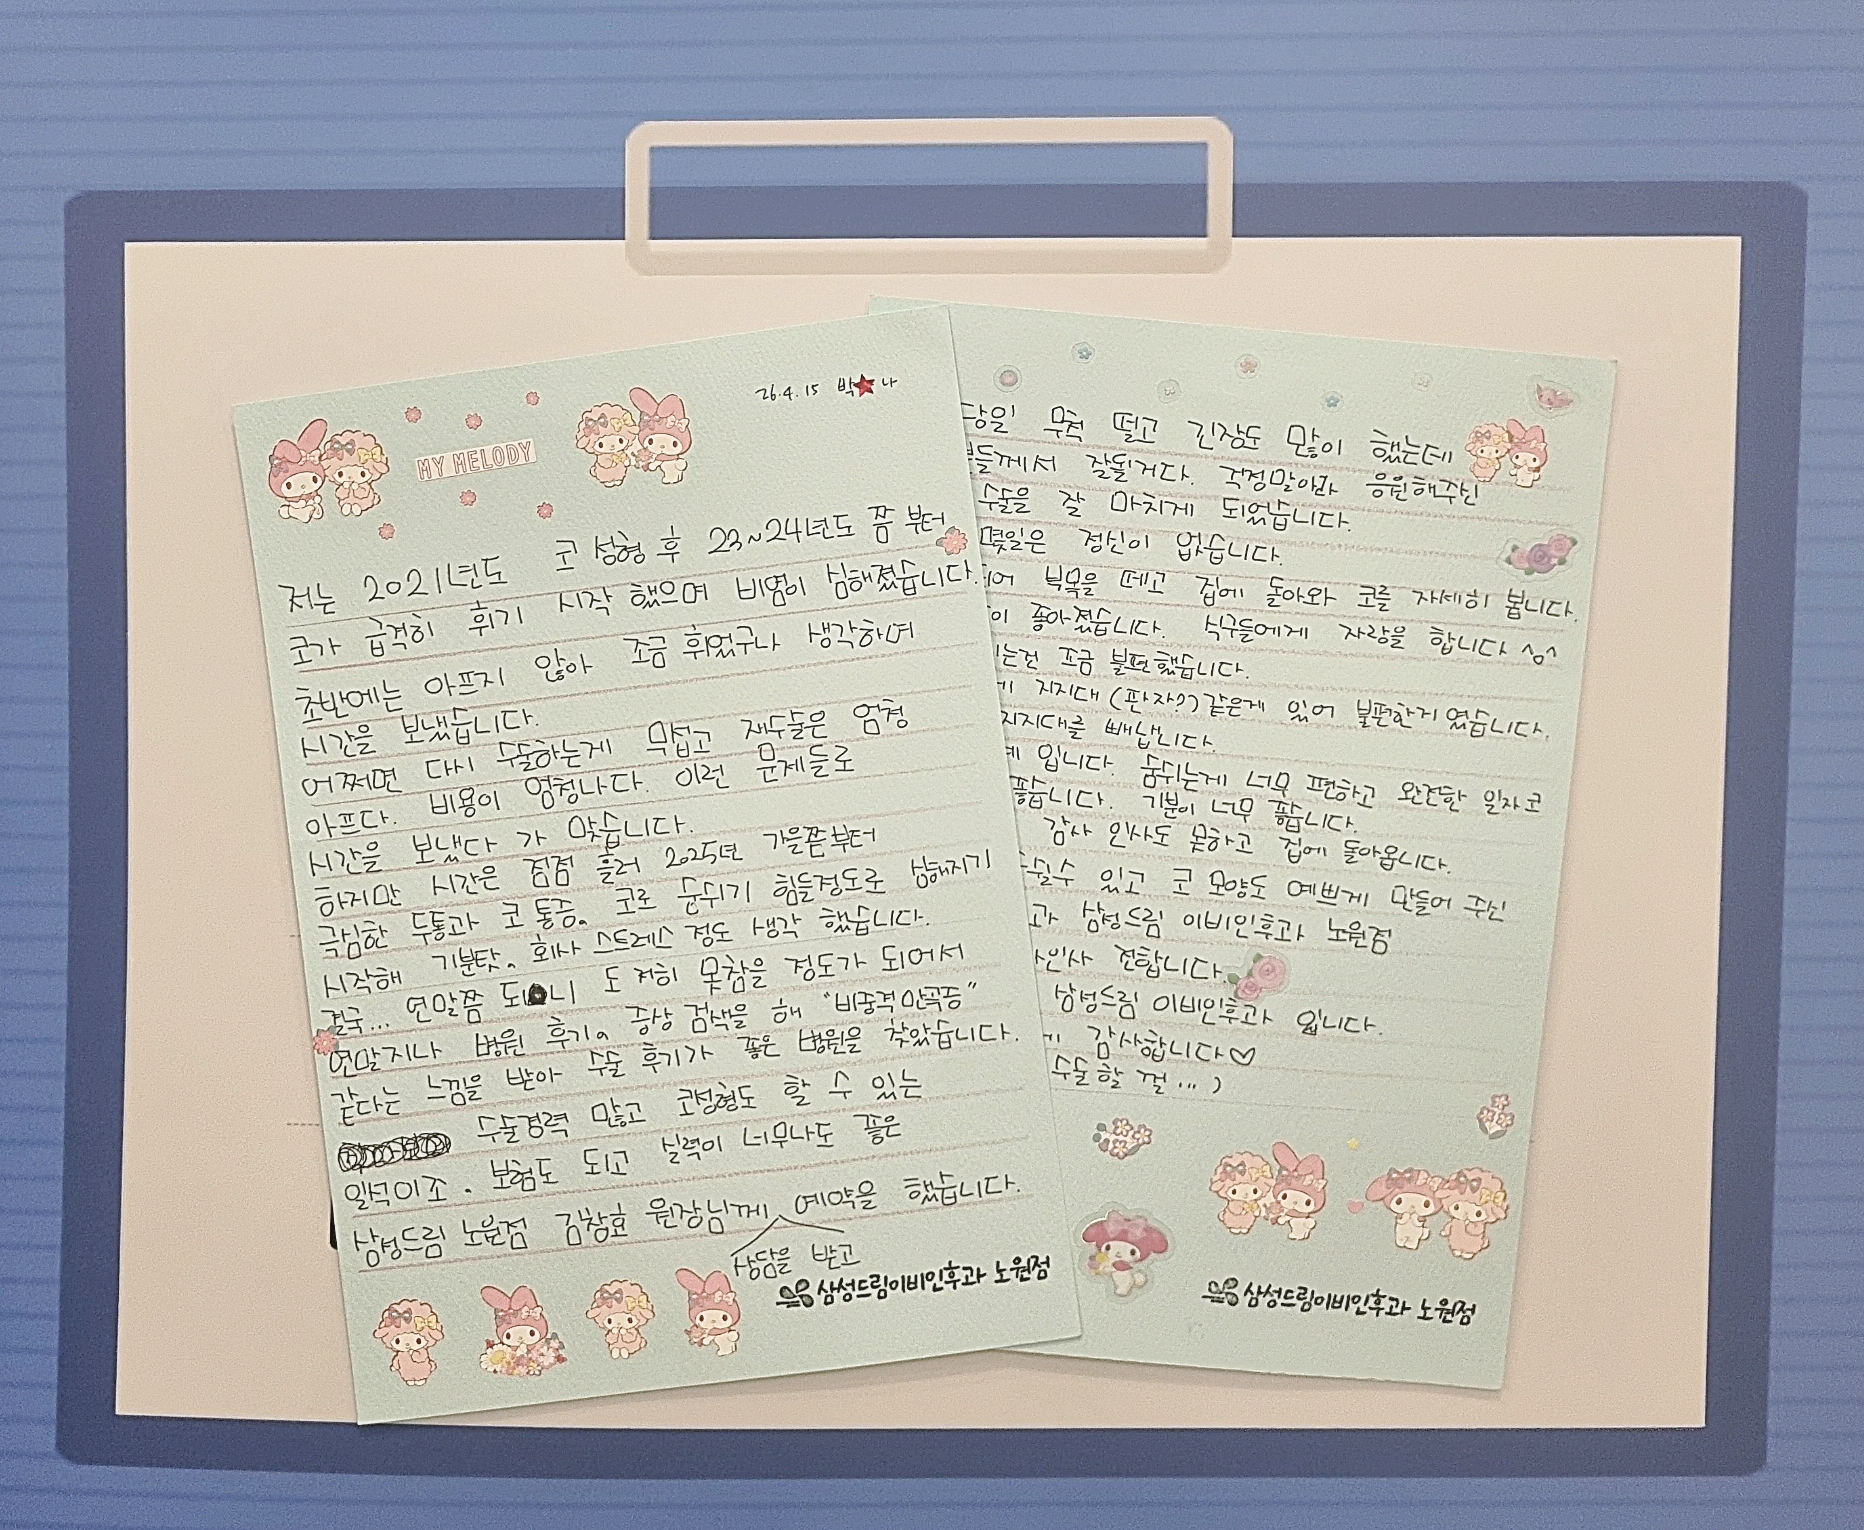 26.4.15 박★나
MY MELODY
저는 2021년도 코 성형 후 23~24년도 쯤 부터
코가 급격히 휘기 시작 했으며 비염이 심해졌습니다.
초반에는 아프지 않아 조금 휘었구나 생각하며
시간을 보냈습니다.
어쩌면 다시 수술하는게 무섭고 재수술은 엄청
아프다. 비용이 엄청나다. 이런 문제들로
시간을 보냈다 가 맞습니다.
하지만 시간은 점점 흘러 2025년 가을쯤부터
극심한 두통과 코 통증. 코로 숨쉬기 힘들정도로 심해지기
시작해 기분탓. 회사 스트레스 정도 생각 했습니다.
결국... 연말쯤 되니 도저히 못참을 정도가 되어서
연말지나 병원 후기. 증상 검색을 해 "비중격만곡증"
같다는 느낌을 받아 수술 후기가 좋은 병원을 찾았습니다.
수술경력 많고 코성형도 할 수 있는
일석이조. 보험도 되고 실력이 너무나도 좋은
삼성드림 노원점 김창효 원장님께 예약을 했습니다.
상담을 받고
삼성드림이비인후과 노원점
당일 무척 떨고 긴장도 많이 했는데
분들께서 잘될거다. 걱정말아라 응원해주신
수술을 잘 마치게 되었습니다.
몇일은 정신이 없습니다.
되어 부목을 떼고 집에 돌아와 코를 자세히 봅니다.
이 좋아졌습니다. 식구들에게 자랑을 합니다 ^o^
는건 조금 불편했습니다.
에 지지대 (판자?) 같은게 있어 불편한거 였습니다.
지지대를 빼냅니다.
입니다. 숨쉬는게 너무 편하고 완전한 일자코
좋습니다. 기분이 너무 좋습니다.
감사 인사도 못하고 집에 돌아옵니다.
쉴수 있고 코 모양도 예쁘게 만들어 주신
과 삼성드림 이비인후과 노원점
인사 전합니다
삼성드림 이비인후과 입니다.
감사합니다♡
수술할 걸... )
삼성드림이비인후과 노원점